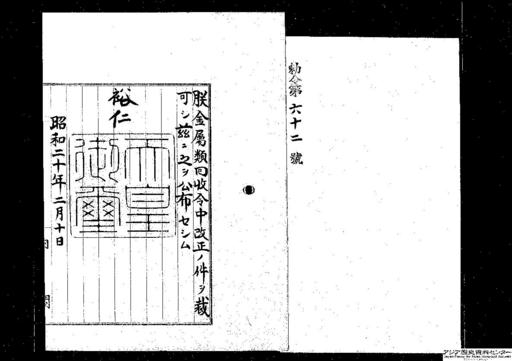 勅令第六十二號
朕金屬類回收令中改正ノ件ヲ裁
可シ茲ニ之ヲ公布セシム
裕仁
天皇
御璽
昭和二十年二月十日
内閣
アジア歴史資料センター